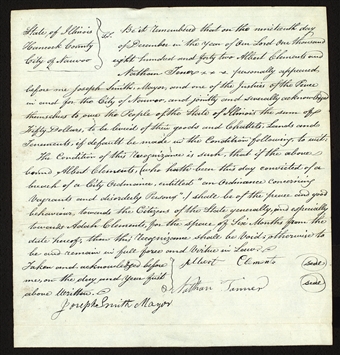 State of Illinois
Hancock County
City of Nauvoo
ss
Be it remembered that on the nineteenth day
of December in the Year of our Lord one thousand
eight hundred and forty two Albert Clements and
Nathan Tenor x x x personally appeared
before me Joseph Smith Mayor, and one of the Justices of the Peace
in and for the City of Nauvoo, and jointly and severally acknowledged
themselves to owe the People of the State of Illinois the sum of
Fifty Dollars, to be levied of their goods and Chattels, Lands and
Tenements if default be made in the Condition following, to wit:
The Condition of this Recognizance is such, that if the above
bound Albert Clements, (who hath been this day convicted of a
breach of a City Ordinance, entitled "an Ordinance concerning
Vagrants and disorderly Persons") shall be of the peace and good
behaviour, towards the Citizens of the State generally, and especially
towards Adah Clements, for the space of Six Months from the
date hereof, then this Recognizance shall be Void; otherwise to
be and remain in full force and Virtue in Law.
Taken and acknowledged before
me, on the day and Year first
above Written.
Joseph Smith Mayor
Albert Clements (seal)
Nathan Tinner (seal)